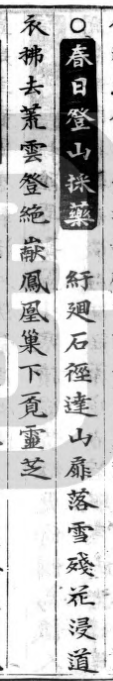 ○春日登山採藥　紆廻石徑達山扉落雪殘花浸道
衣拂去荒雲登絶巘鳳凰巢下覔靈芝